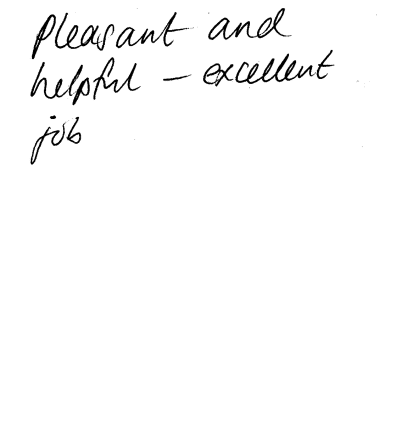 Pleasant and
helpful – excellent
job